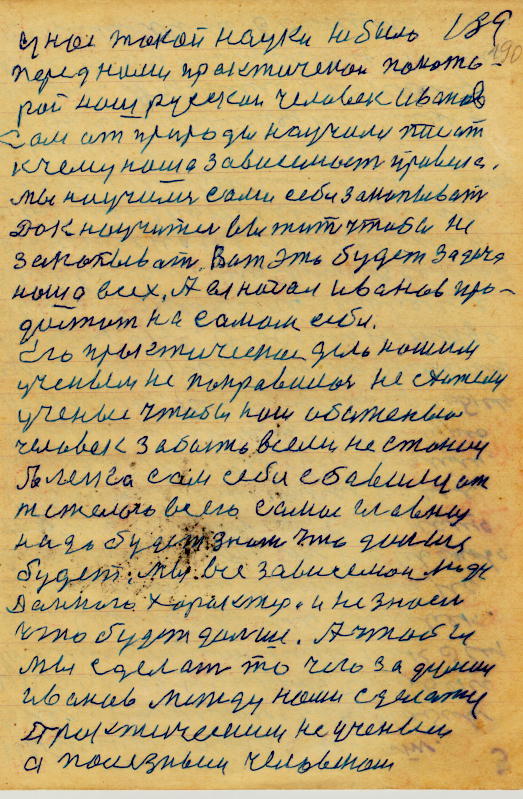 189
190
у нас такой науки не было
перед нами практически показа-
рой наш русский человек Иванов
Сам от природы научили
к чему наша зависимост привела.
мы научили сами себя закапыват
Док научится и жит чтобы не
закапыват. Вот Это будет задача
наша всех. А начал Иванов про-
на самом себе.
Его практическое дело нашим
ученым не понравилось не схотели
ученые чтобы наш
человек
сам себе
всего самое главное
надо будет знат что дальше
будет. мы все зависемои люди
Данного характера. и не знаем
что будет дальше. А чтобы
мы сделат то чего за думал
Иванов между нами сделатся
Практическим не ученым
а полезным человеком